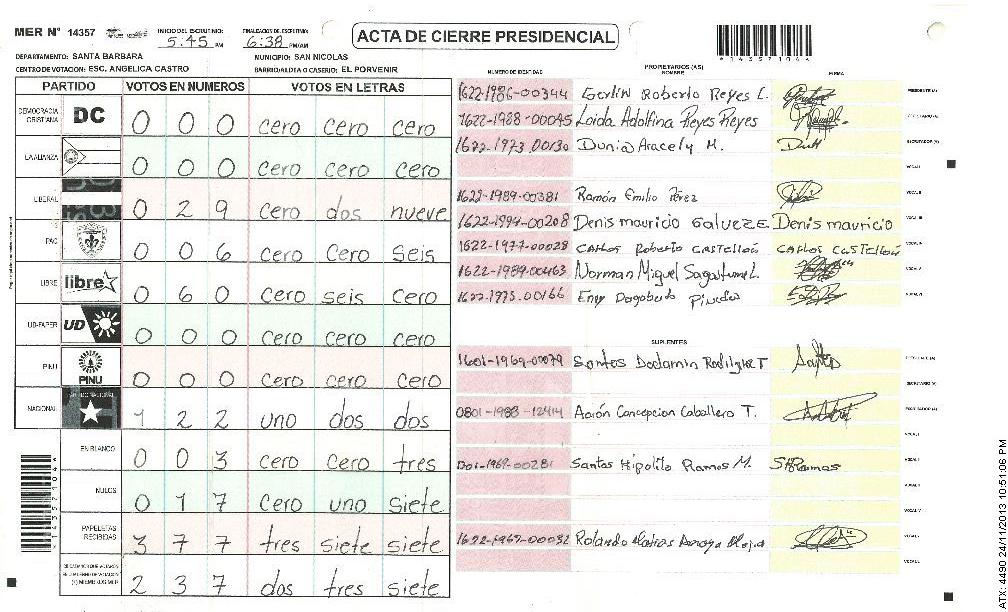 MER N° 14357
INICIO DEL ESCRUTINIO: 5:45 PM
FINALIZACION DEL ESCRUTINIO: 6:38 PM/AM
ACTA DE CIERRE PRESIDENCIAL
*143571044
DEPARTAMENTO: SANTA BARBARA
MUNICIPIO: SAN NICOLAS
CENTRO DE VOTACION: ESC. ANGELICA CASTRO
BARRIO/ALDEA O CASERIO: EL PORVENIR
PARTIDO VOTOS EN NUMEROS VOTOS EN LETRAS
DEMOCRACIA CRISTIANA DC 0 0 0 cero cero cero
LA ALIANZA 0 0 0 cero cero cero
LIBERAL 0 2 9 cero dos nueve
PAC 0 0 6 cero cero seis
LIBRE libre 0 6 0 cero seis cero
UD-FAPER UD 0 0 0 cero cero cero
PINU PINU 0 0 0 cero cero cero
NACIONAL 1 2 2 uno dos dos
EN BLANCO 0 0 3 cero cero tres
NULOS 0 1 7 cero uno siete
PAPELETAS RECIBIDAS 3 7 7 tres siete siete
2 3 7 dos tres siete
PROPIETARIOS (AS)
NUMERO DE IDENTIDAD NOMBRE FIRMA
1622-1986-00344 Roberto Reyes L. PRESIDENTE (A)
1622-1988-00045 Loida Adolfina Reyes Reyes SECRETARIO (A)
1622-1973-00130 Dunia Aracely M. ESCRUTADOR (A)
VOCAL I
1622-1989-00381 Ramón Emilio Pérez VOCAL II
1622-1994-00208 Denis mauricio Galveze Denis mauricio VOCAL III
1622-1977-00028 Carlos Roberto Castellon Carlos Castellon VOCAL IV
1622-1989-00463 Norman Miguel Sagastume L. VOCAL V
1622-1975-00166 Eny Dagoberto Pineda VOCAL VI
SUPLENTES
1601-1969-00079 Santos PRESIDENTE (A)
SECRETARIO (A)
0801-1983-12414 Aarón Concepcion Caballero T. ESCRUTADOR (A)
VOCAL I
Santos Hipolito Ramos M. VOCAL II
VOCAL III
VOCAL IV
1622-1967-00032 Rolando VOCAL V
VOCAL VI
*143571044*
ATX: 4490 24/11/2013 10:51:06 PM